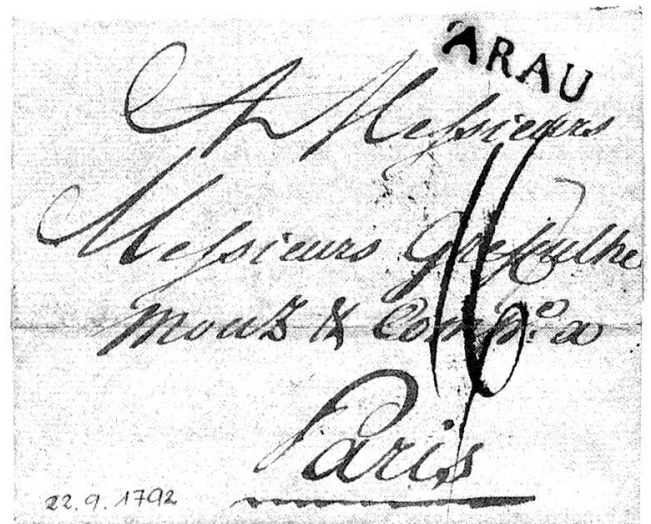 ARAU
A Messieurs
Messieurs Greffulhe
Montz & Comp.e a
16
Paris
22.9.1792